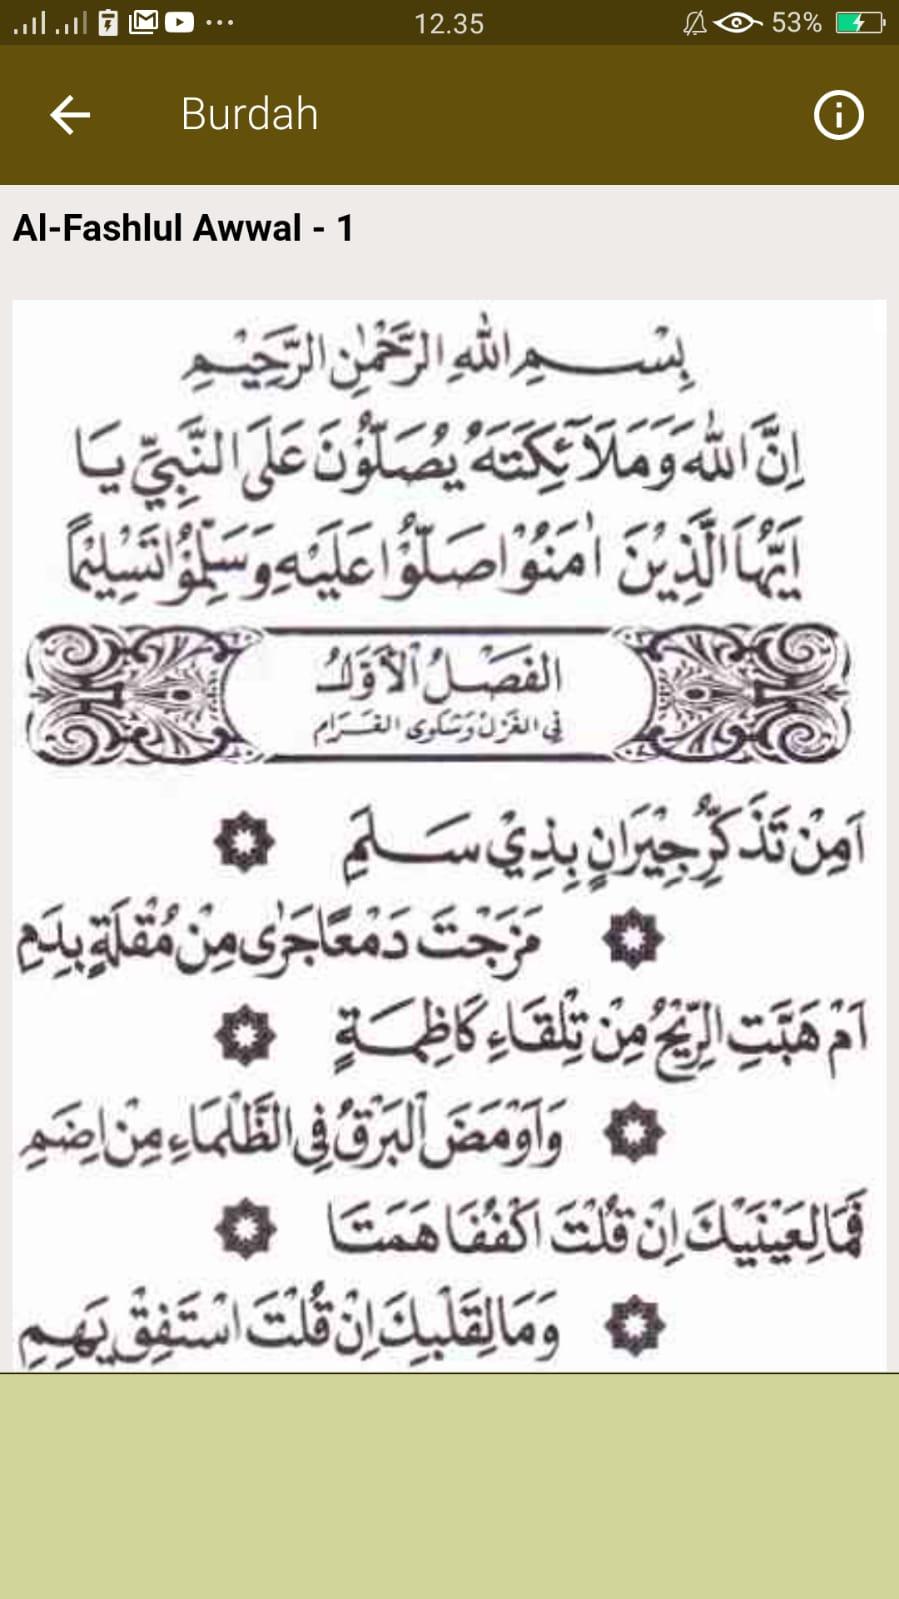 12.35
53%
Burdah
Al-Fashlul Awwal - 1
بِسْمِ اللّٰهِ الرَّحْمٰنِ الرَّحِيْمِ
اِنَّ اللّٰهَ وَمَلَآئِكَتَهُ يُصَلُّوْنَ عَلَى النَّبِيِّ يَا
اَيُّهَا الَّذِيْنَ اٰمَنُوْا صَلُّوْا عَلَيْهِ وَسَلِّمُوْا تَسْلِيْمًا
الفَصْلُ الْاَوَّلُ
فِي الغَزَلِ وَشَكْوَى الغَرَامِ
اَمِنْ تَذَكُّرِ جِيْرَانٍ بِذِيْ سَلَمِ
مَزَجْتَ دَمْعًا جَرٰى مِنْ مُقْلَةٍ بِدَمِ
اَمْ هَبَّتِ الرِّيْحُ مِنْ تِلْقَاءِ كَاظِمَةٍ
وَاَوْمَضَ الْبَرْقُ فِي الظَّلْمَاءِ مِنْ اِضَمِ
فَمَا لِعَيْنَيْكَ اِنْ قُلْتَ اكْفُفَا هَمَتَا
وَمَا لِقَلْبِكَ اِنْ قُلْتَ اسْتَفِقْ يَهِمِ